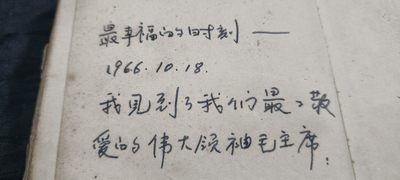 最幸福的时刻——
1966.10.18.
我见到了我们最最敬
爱的伟大领袖毛主席!